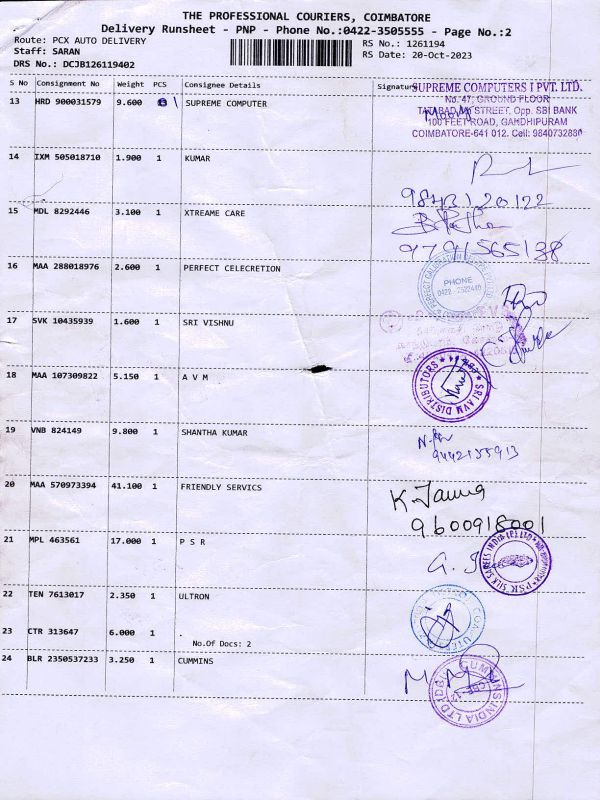 THE PROFESSIONAL COURIERS, COIMBATORE
Delivery Runsheet - PNP - Phone No.:0422-3505555 - Page No.:2
Route: PCX AUTO DELIVERY
RS No.: 1261194
Staff: SARAN
RS Date: 20-Oct-2023
DRS No.: DCJB126119402
S No Consignment No Weight PCS Consignee Details Signature
SUPREME COMPUTERS I PVT. LTD.
No. 47, GROUND FLOOR
TATABAD STREET, Opp. SBI BANK
100 FEET ROAD, GANDHIPURAM
COIMBATORE-641 012. Cell: 9840732880
13 HRD 900031579 9.600 1 SUPREME COMPUTER
14 IXM 505018710 1.900 1 KUMAR
15 MDL 8292446 3.100 1 XTREAME CARE
9791565138
16 MAA 288018976 2.600 1 PERFECT CELECRETION
PHONE
17 SVK 10435939 1.600 1 SRI VISHNU
18 MAA 107309822 5.150 1 A V M
SRI AVM DISTRIBUTORS
19 VNB 824149 9.800 1 SHANTHA KUMAR
9442155913
20 MAA 570973394 41.100 1 FRIENDLY SERVICS
9600918001
21 MPL 463561 17.000 1 P S R
PSR SILK SAREES INDIA
22 TEN 7613017 2.350 1 ULTRON
23 CTR 313647 6.000 1 .
No.Of Docs: 2
24 BLR 2350537233 3.250 1 CUMMINS
CUMMINS INDIA LTD